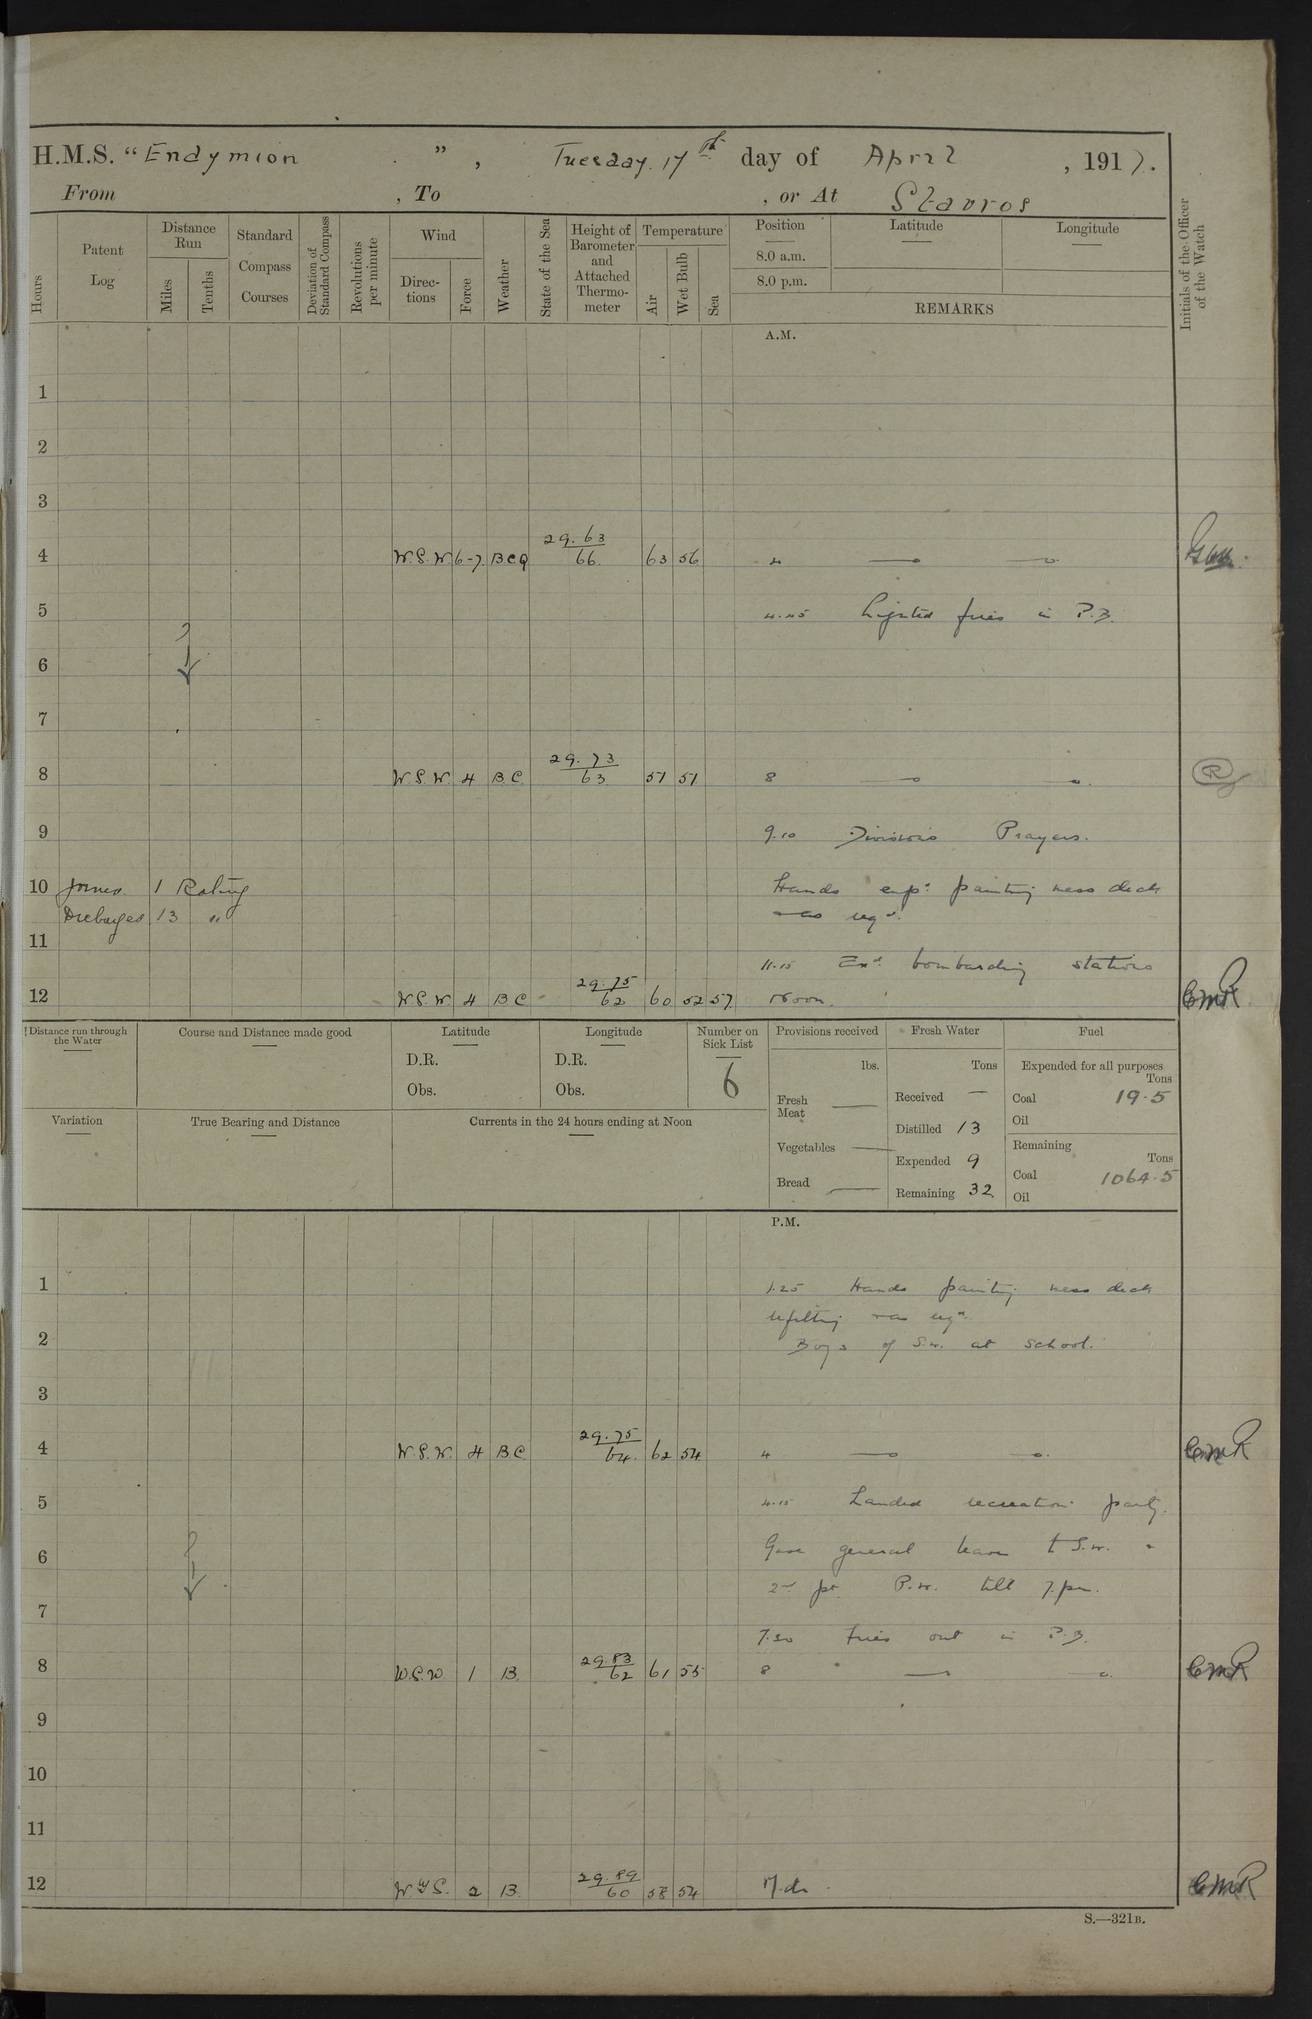 H.M.S. "Endymion", Tuesday. 17th day of April, 1917.
From , To , or At Stavros
Hours
Patent Log
Distance Run
Miles
Tenths
Standard Compass Courses
Deviation of Standard Compass
Revolutions per minute
Wind
Directions
Force
Weather
State of the Sea
Height of Barometer and Attached Thermometer
Temperature
Air
Wet Bulb
Sea
Position
8.0 a.m.
8.0 p.m.
Latitude
Longitude
REMARKS
Initials of the Officer of the Watch
A.M.
1
2
3
4 W.S.W. 6-7 BCQ 29.63/66 63 56 4
5 4.45 Lighted fires in P.B.
6
7
8 W.S.W. 4 BC 29.73/63 57 51 8 R
9 9.10 Divisions Prayers.
10 Joined 1 Rating Hands emp: painting mess deck
Discharged 13 " & as reqd.
11
11.15 Exd. bombarding stations
12 W.S.W. 4 BC 29.75/62 60 52 57 Noon. CMR
Distance run through the Water
Course and Distance made good
Latitude
D.R.
Obs.
Longitude
D.R.
Obs.
Number on Sick List
6
Variation
True Bearing and Distance
Currents in the 24 hours ending at Noon
Provisions received
lbs.
Fresh Meat —
Vegetables —
Bread —
Fresh Water
Tons
Received —
Distilled 13
Expended 9
Remaining 32
Fuel
Expended for all purposes
Tons
Coal 19.5
Oil
Remaining
Tons
Coal 1064.5
Oil
P.M.
1 1.25 Hands painting mess deck
refitting & as reqd.
2 Boys of S.W. at school.
3
4 W.S.W. 4 BC 29.75/64 62 54 4 CMR
5 4.15 Landed recreation party.
6 Gave general leave to S.W. &
2nd pt P.W. till 7.pm.
7
7.30 fires out in P.B.
8 W.S.W. 1 B. 29.83/62 61 55 8 CMR
9
10
11
12 WyS. 2 B. 29.89/60 58 54 M.dn. CMR
S.—321B.